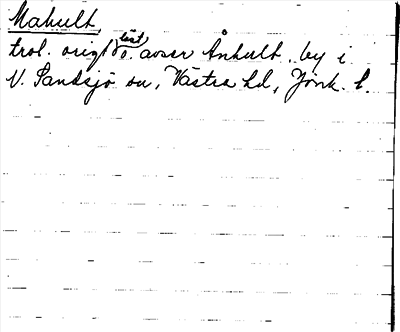 Mahult,
trol. origl läst o. avser Ånhult, by i
N. Sandsjö sn, Västra hd, Jönk. l.